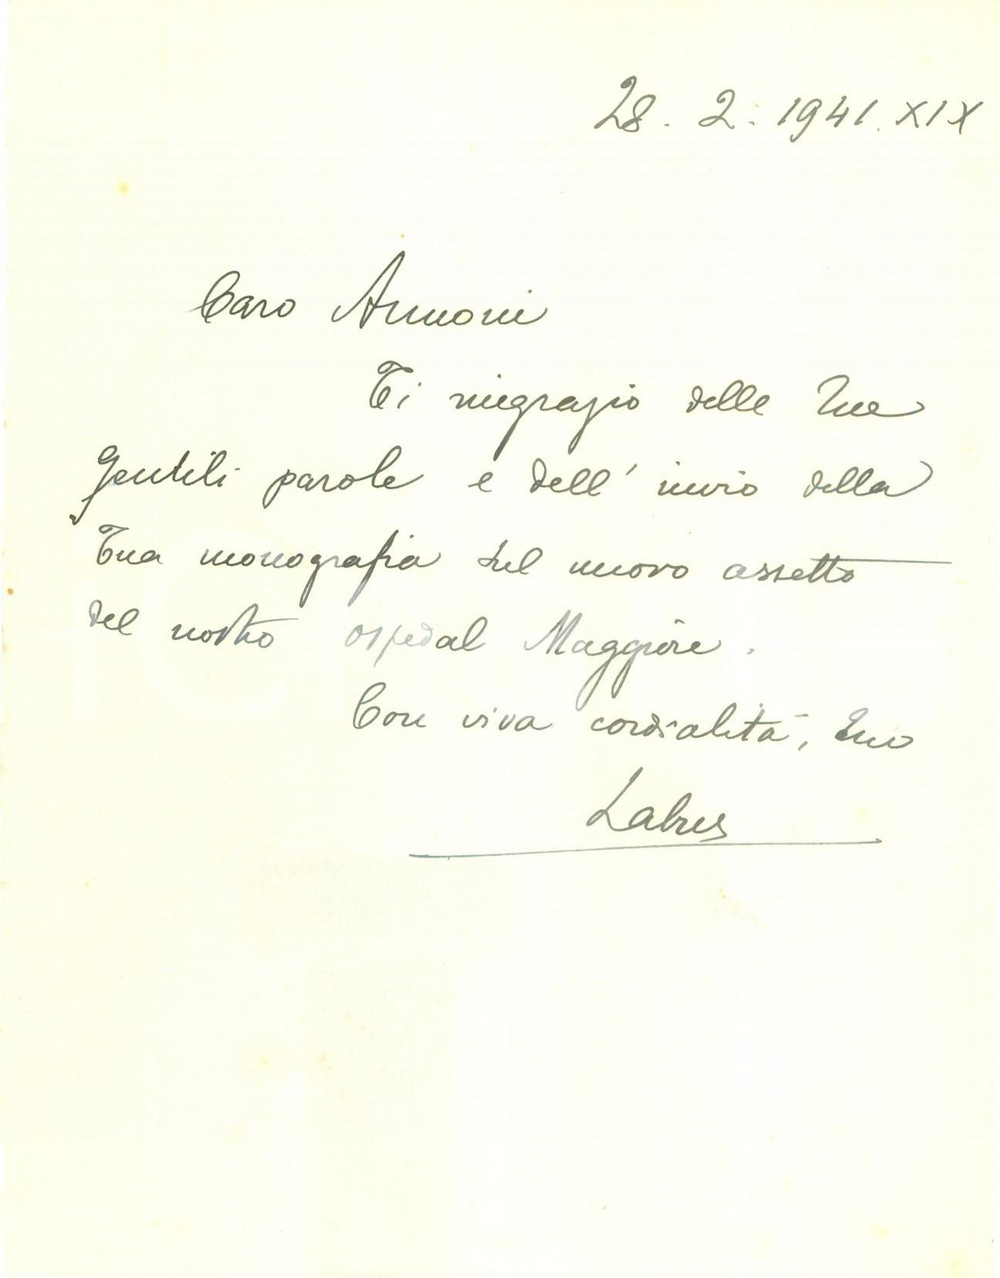 28. 2. 1941. XIX
Caro Annoni
Ti ringrazio delle Tue
gentili parole e dell' invio della
Tua monografia sul nuovo assetto
del nostro ospedal Maggiore.
Con viva cordialità, Tuo
Labus